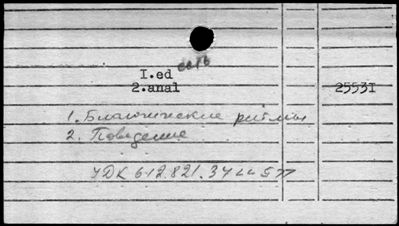 есть
I.ed
2.anal 2553I
1. Биологические ритмы
2. Поведение
УДК 612.821.34